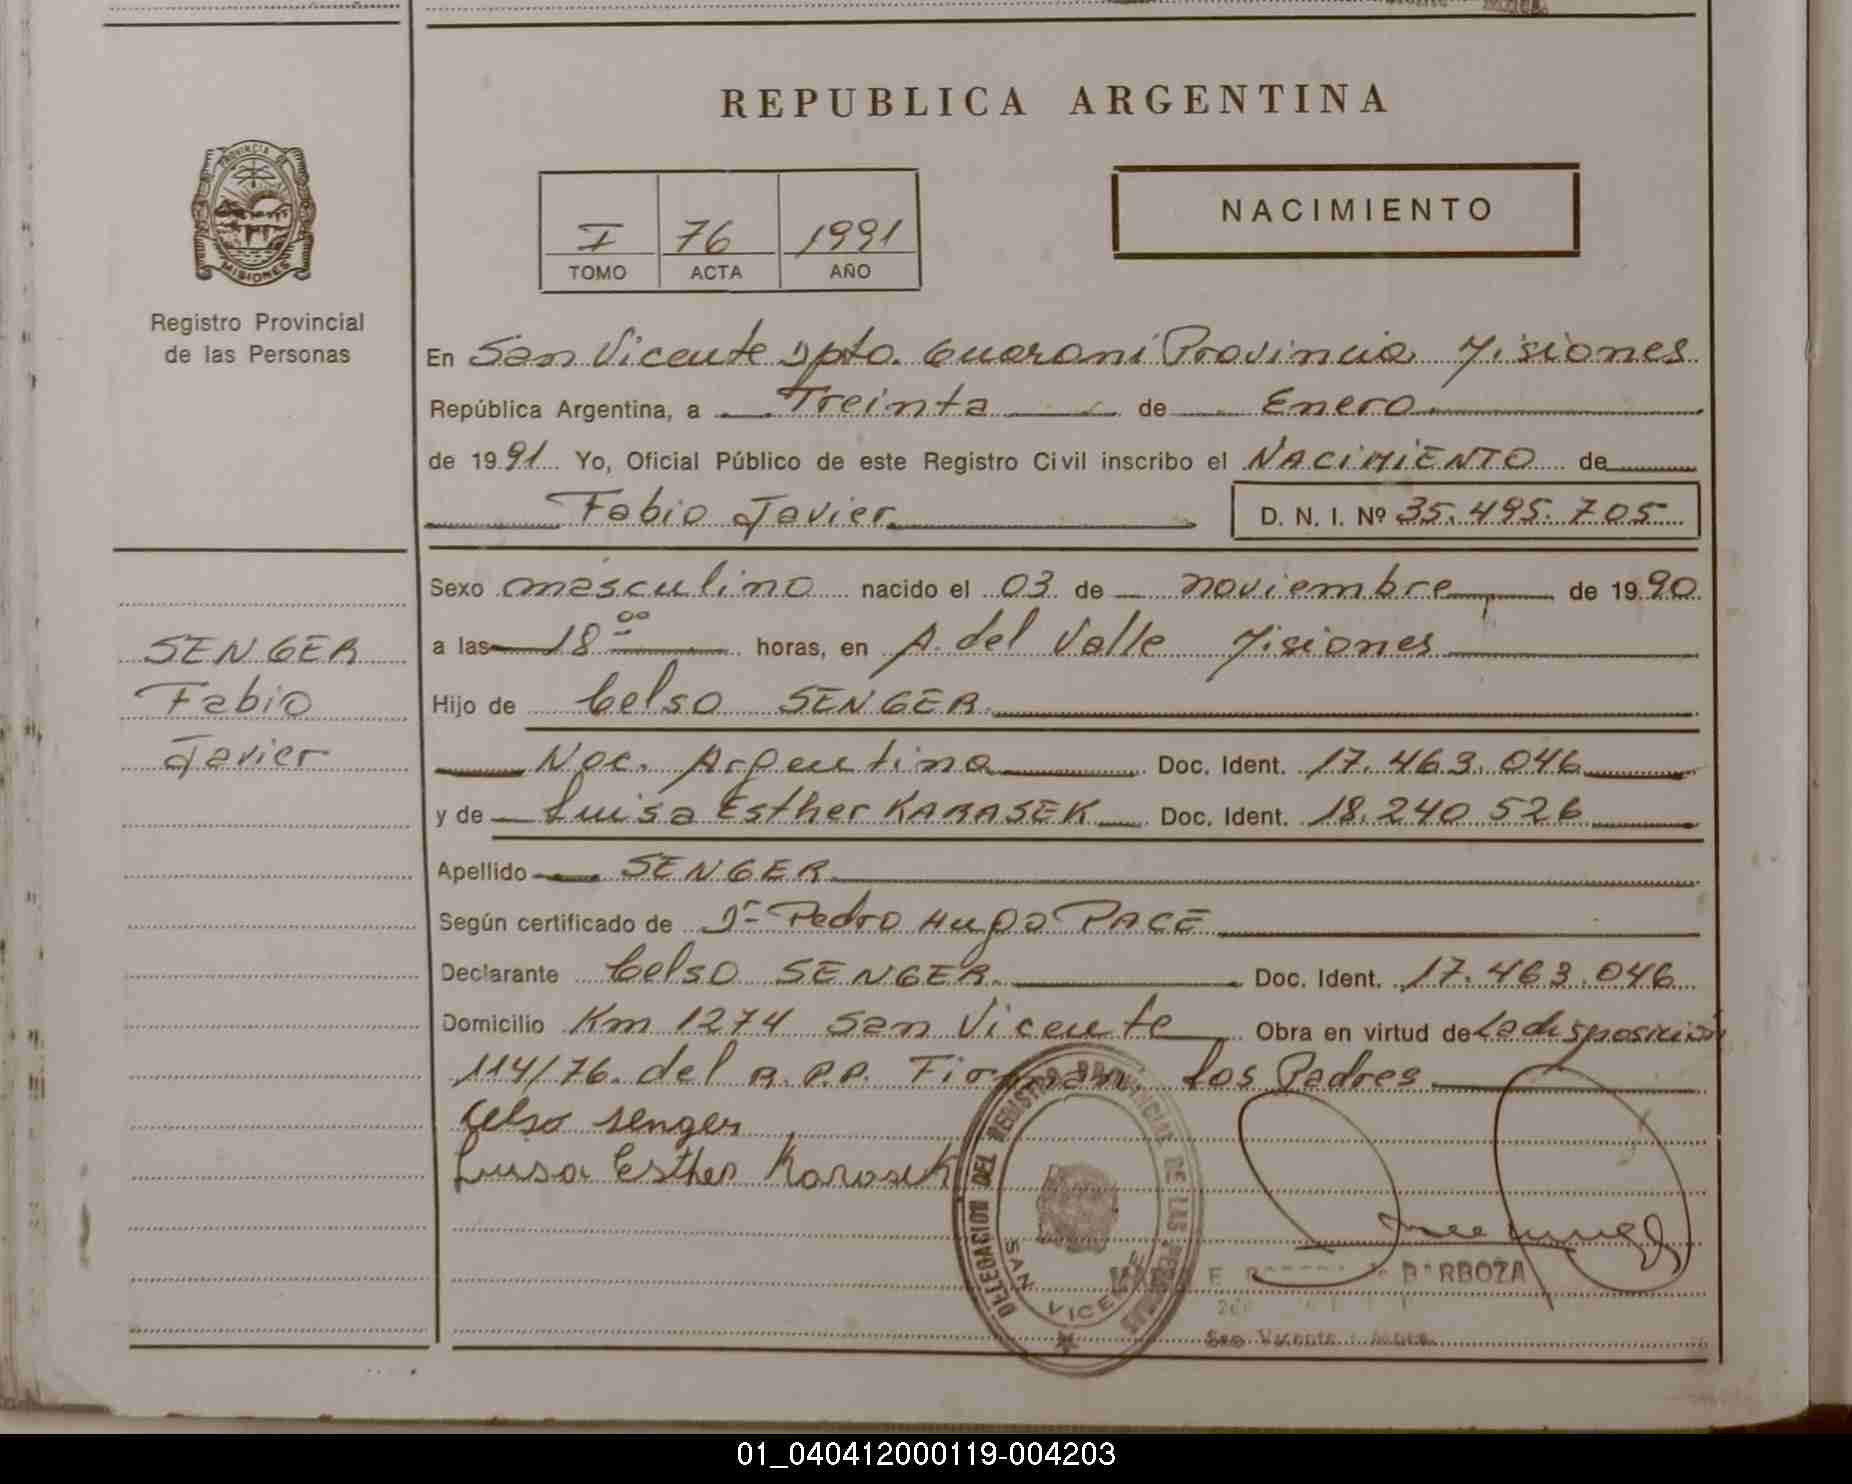 REPUBLICA ARGENTINA
PROVINCIA DE
MISIONES
Registro Provincial
de las Personas
I 76 1991
TOMO ACTA AÑO
NACIMIENTO
En San Vicente Dpto. Guarani Provincia Misiones
República Argentina, a Treinta de Enero
de 1991 Yo, Oficial Público de este Registro Civil inscribo el NACIMIENTO de
Fabio Javier D. N. I. Nº 35.495.705
Sexo masculino nacido el 03 de noviembre de 1990
a las 18 00 horas, en A. del Valle Misiones
Hijo de Celso SENGER
Nac. Argentina Doc. Ident. 17.463.046
y de Luisa Esther KARASEK Doc. Ident. 18.240.526
Apellido SENGER
Según certificado de Dr Pedro Hugo PACE
Declarante Celso SENGER Doc. Ident. 17.463.046
Domicilio Km 1274 San Vicente Obra en virtud de La disposición
114/76. del R.P.P. Firman. Los Padres
Celso senger
Luisa Esther Karasek
SENGER
Fabio
Javier
DELEGACION DEL REGISTRO PROVINCIAL DE LAS PERSONAS
SAN VICENTE
BARBOZA
San Vicente
01_040412000119-004203